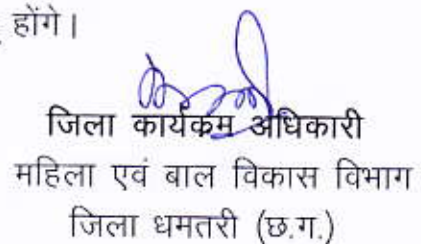 होंगे।
जिला कार्यक्रम अधिकारी
महिला एवं बाल विकास विभाग
जिला धमतरी (छ.ग.)